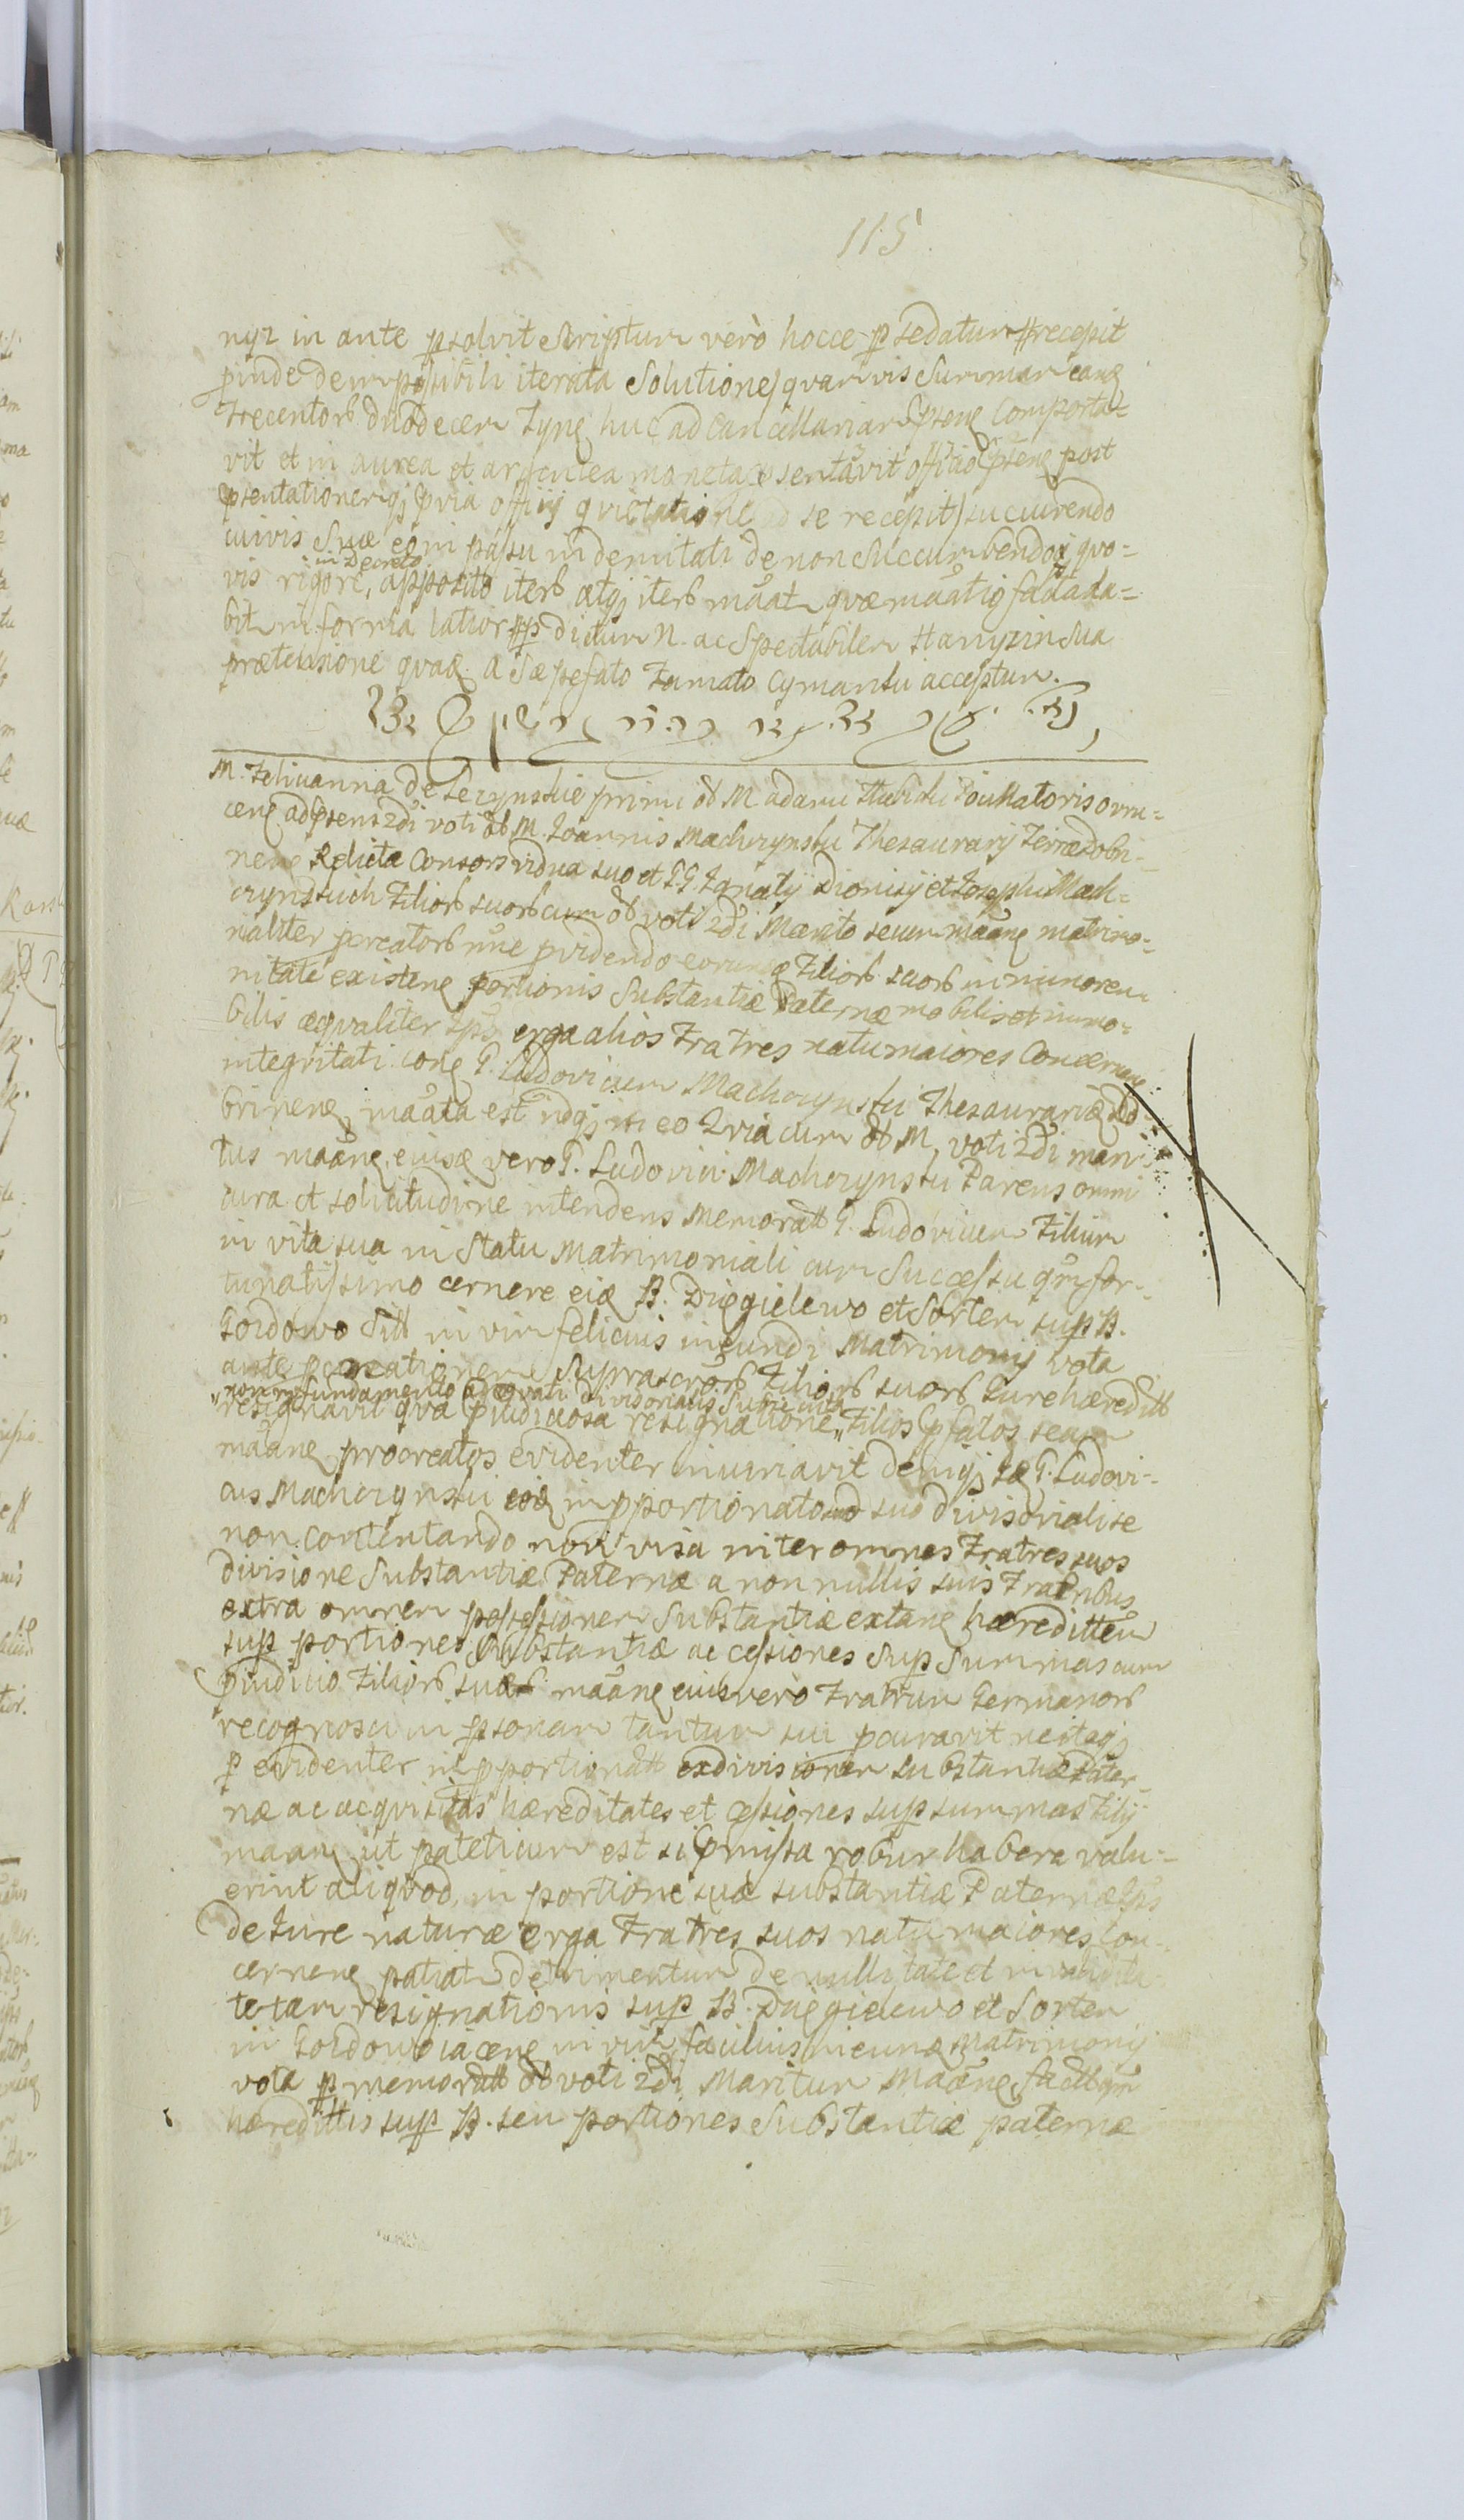 115
nyz in ante psolvit Scriptum verò hocce p sedatum recepit
pinde dem possibili iterata Solutione quamvis Summam eanq
Trecentorb duodecem Tynq huc ad Cancellariam Psenq Comporta=
vit et in aurea et argentea moneta psentavit officio psenq post
psentationemqj pvia officij qvietatione ad se recepit succurendo
cuivis Suæ eo in passu indemnitati de non Succumbendo qvo=
in Decreto
vis rigore, apposito iterb atqj iterb maat qvæ maatio facta da=
bit in forma latiori p dictum N. ac Spectabilem Hanyz in Sua
prætensione qvaq a Sæpefato Famato Cymanski acceptum.
M. Felicianna de Lecynskie primi ob M. Adami
cenq ad psens 2di voti ob M. Joannis Machczynski Thesaurarij Terræ dobri=
nenq Relicta Consors vidua suo et GG. Ignatij Dionisij et Josephi Mach=
czynskich Filiorb suorb cum ob voti 2di Marito secum maanq matrimo=
nialiter pcreatorb nunc pvidendo eorumq Filiorb suorb in minoren=
nitate existenq portionis Substantiæ Paternæ mobilis et immo=
bilis æqvaliter Ipsos erga alios Fratres natu maiores Concernenq
integritati conq G. Ludovicum Machczynski Thesaurariq do=
brinenq maata est idqj in eo Qvia cum ob M. voti 2di mari=
tus maanq eiusq vero G. Ludovici Machczynski Parens omni
cura et solicitudine intendens Memoratt G. Ludovicum Filium
in vita sua in Statu Matrimoniali cum Successu qm for=
tunatissimo cernere eiq B. Dzięgielewo et Sortem sup B.
Gordowo Sitt in vim felicius ineundi Matrimonij vota
ante pcreationem Suprascrorb Filiorb suorb Jure hæreditt
non ex fundamento adæqvati divisorialis Juris
resignavit qva pjudiciosa resignatione Filios pfatos secum
maanq procreatos evidenter iniuriavit deniqj Iq G. Ludovi=
cus Machczynski eoq in pportionato suo divisoriali se
non contentando non visa inter omnes Fratres suos
divisione Substantiæ Paternæ a non nullis suis Fratribus
extra omnem possessionem Substantiæ extanq hæredittem
sup portiones Substantiæ ac cessiones Sup Summas cum
pjudicio Filiorb suorb maanq eius vero Fratrum Germanorb
recognosci in psonam tantum sui pcuravit ne itaqj
p evidenter in pportionatt ex divisionem substantiæ Pater=
næ ac acqvisitas hæreditates et cessiones sup summas Filij
maanq ut pateticum est si pmissa robur habere valu=
erint aliqvod in portione suæ substantiæ Paternæ Ipsos
de Jure naturæ erga Fratres suos natu maiores Con=
cernenq patiat detrimentum de nullitate et invalidita=
te tam resignationis sup B. Dzięgielewo et Sortem
in Gordowo iacenq in vim facilius ineunq Matrimonij
vota p memoratt ob voti 2di Maritum Maanq factt qm
hæredittis sup B. seu portiones Substantiæ paternæ